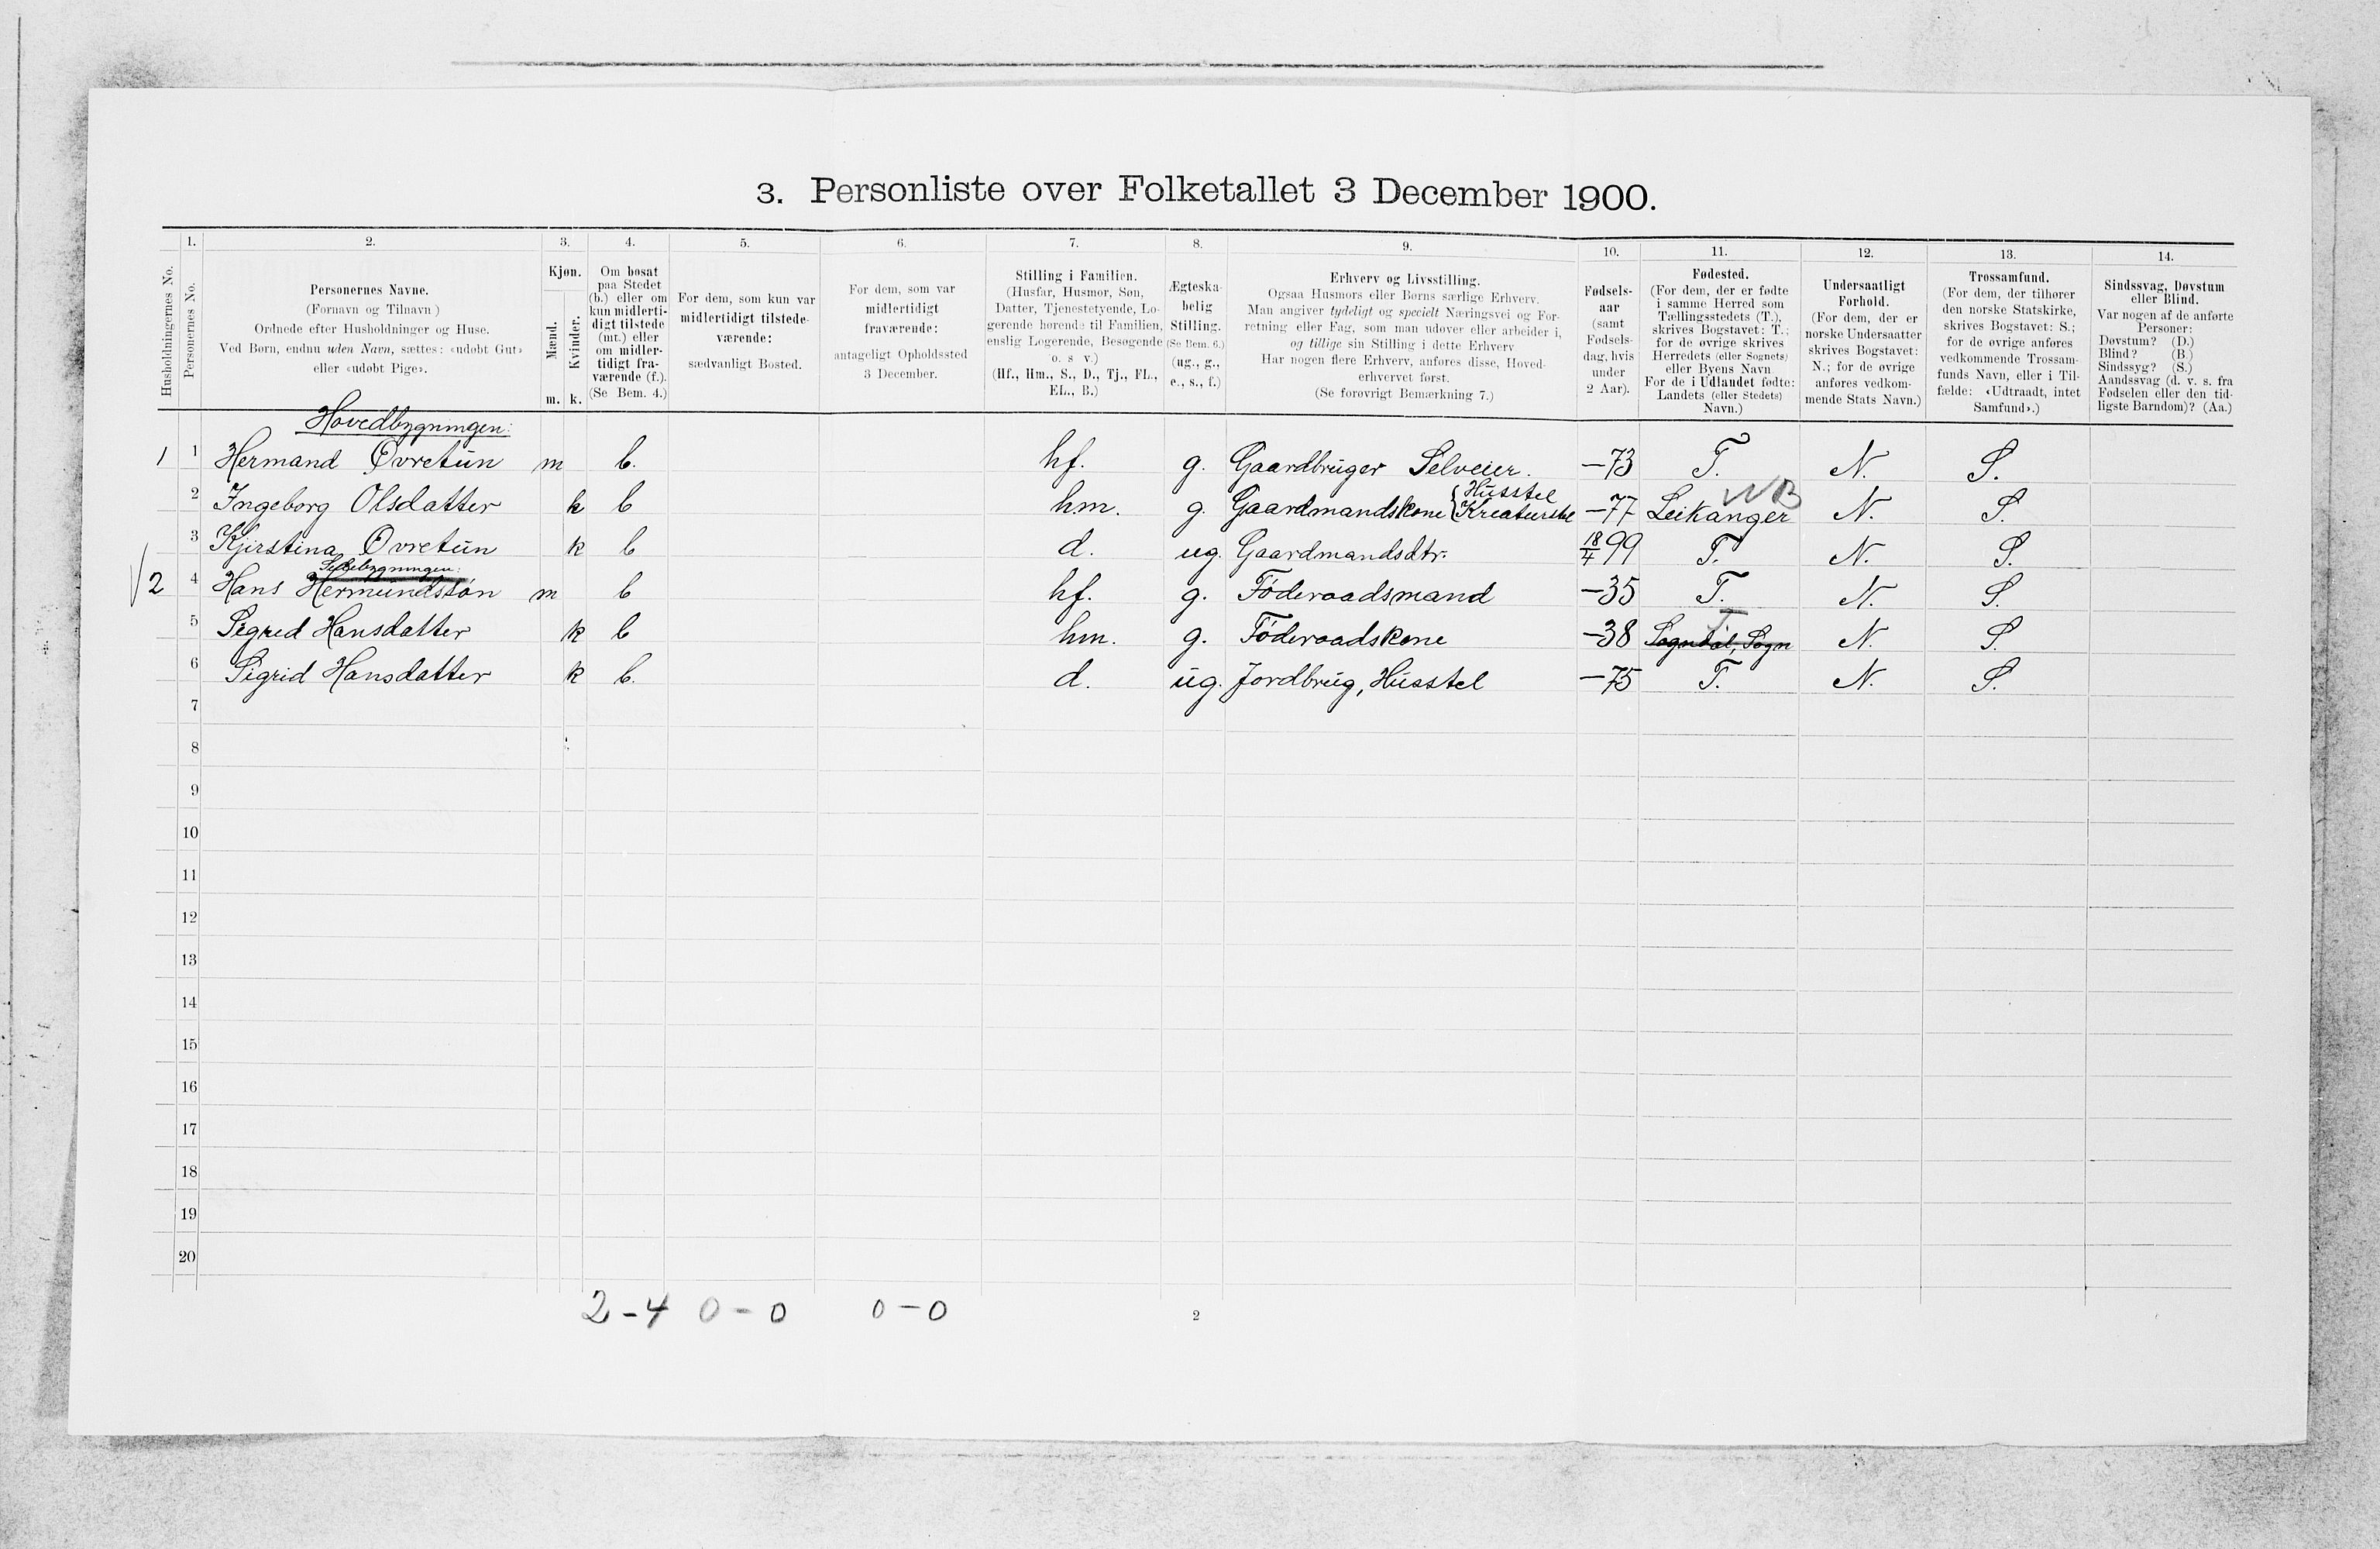 3. Personliste over Folketallet 3 December 1900.
1. 2. 3. 4. 5. 6. 7. 8. 9. 10. 11. 12. 13. 14.
Husholdningernes No.
Personernes No.
Personernes Navne.
(Fornavn og Tilnavn)
Ordnede efter Husholdninger og Huse.
Ved Børn, endnu uden Navn, sættes: «udøbt Gut»
eller «udøbt Pige».
Kjøn.
Mænd.
Kvinder.
m. k.
Om bosat
paa Stedet
(b.) eller om
kun midlerti-
digt tilstede
(mt.) eller
om midler-
tidigt fra-
værende (f.).
(Se Bem. 4.)
For dem, som kun var
midlertidigt tilstede-
værende:
sædvanligt Bosted.
For dem, som var
midlertidigt
fraværende:
antageligt Opholdssted
3 December.
Stilling i Familien.
(Husfar, Husmor, Søn,
Datter, Tjenestetyende, Lo-
gerende hørende til Familien,
enslig Logerende, Besøgende
o. s v.)
(Hf., Hm., S., D., Tj., FL.,
EL., B.)
Ægteska-
belig
Stilling.
(Se Bem. 6.)
(ug., g.,
e., s., f.)
Erhverv og Livsstilling.
Ogsaa Husmors eller Børns særlige Erhverv.
Man angiver tydeligt og specielt Næringsvei og For-
retning eller Fag, som man udøver eller arbeider i,
og tillige sin Stilling i dette Erhverv
Har nogen flere Erhverv, anføres disse, Hoved-
erhvervet først.
(Se forøvrigt Bemærkning 7.)
Fødsels-
aar
(samt
Fødsels-
dag, hvis
under
2 Aar).
Fødested.
(For dem, der er fødte
i samme Herred som
Tællingsstedets (T.),
skrives Bogstavet: T.;
for de øvrige skrives
Herredets (eller Sognets)
eller Byens Navn
For de i Udlandet fødte:
Landets (eller Stedets)
Navn.)
Undersaatligt
Forhold.
(For dem, der er
norske Undersaatter
skrives Bogstavet:
N.; for de øvrige
anføres vedkom-
mende Stats Navn.)
Trossamfund.
(For dem, der tilhører
den norske Statskirke,
skrives Bogstavet: S.;
for de øvrige anføres
vedkommende Trossam-
funds Navn, eller i Til-
fælde: «Udtraadt, intet
Samfund».)
Sindssvag, Døvstum
eller Blind.
Var nogen af de anførte
Personer:
Døvstum? (D.)
Blind? (B)
Sindssyg? (S.)
Aandssvag (d. v. s. fra
Fødselen eller den tid-
ligste Barndom)? (Aa.)
Hovedbygningen:
1 1 Hermand Øvretun m b. hf. g. Gaardbruger Selveier. -73 T. N. S.
2 Ingeborg Olsdatter k b hm. g. Gaardmandskone { Husstel Kreaturstel -77 Leikanger N. S.
3 Kjirstina Øvretun k b d. ug. Gaardmandsdtr. 18/4 99 T. N. S.
2 4 Hans Hermundssøn m b hf. g. Föderaadsmand -35 T. N. S.
5 Sigrid Hansdatter k b hm. g. Föderaadskone -38 T Sogndal, Sogn N. S.
6 Sigrid Hansdatter k b. d. ug. Jordbrug, Husstel -75 T. N. S.
7
8
9
10
11
12
13
14
15
16
17
18
19
20
2-4 0-0 0-0
2